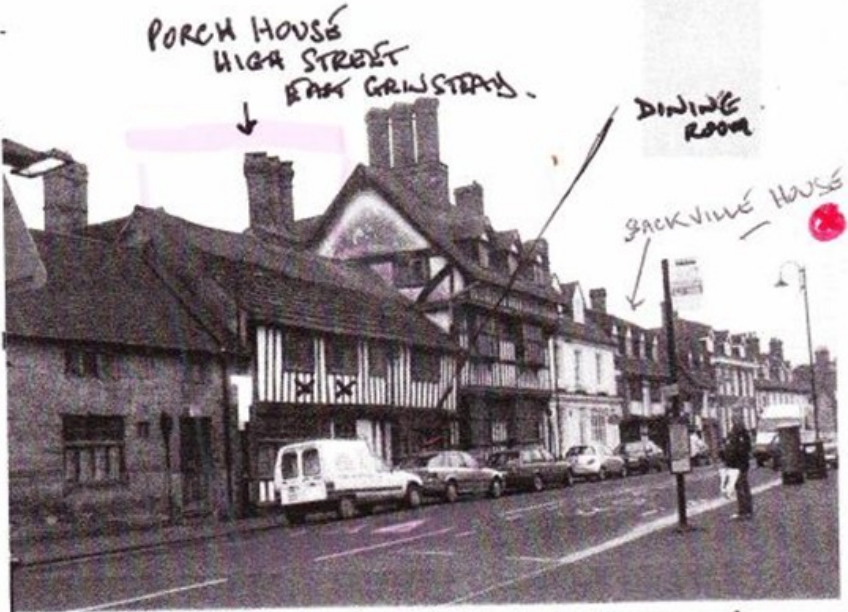 PORCH HOUSE
HIGH STREET
EAST GRINSTEAD.
DINING
ROOM
SACKVILLE HOUSE